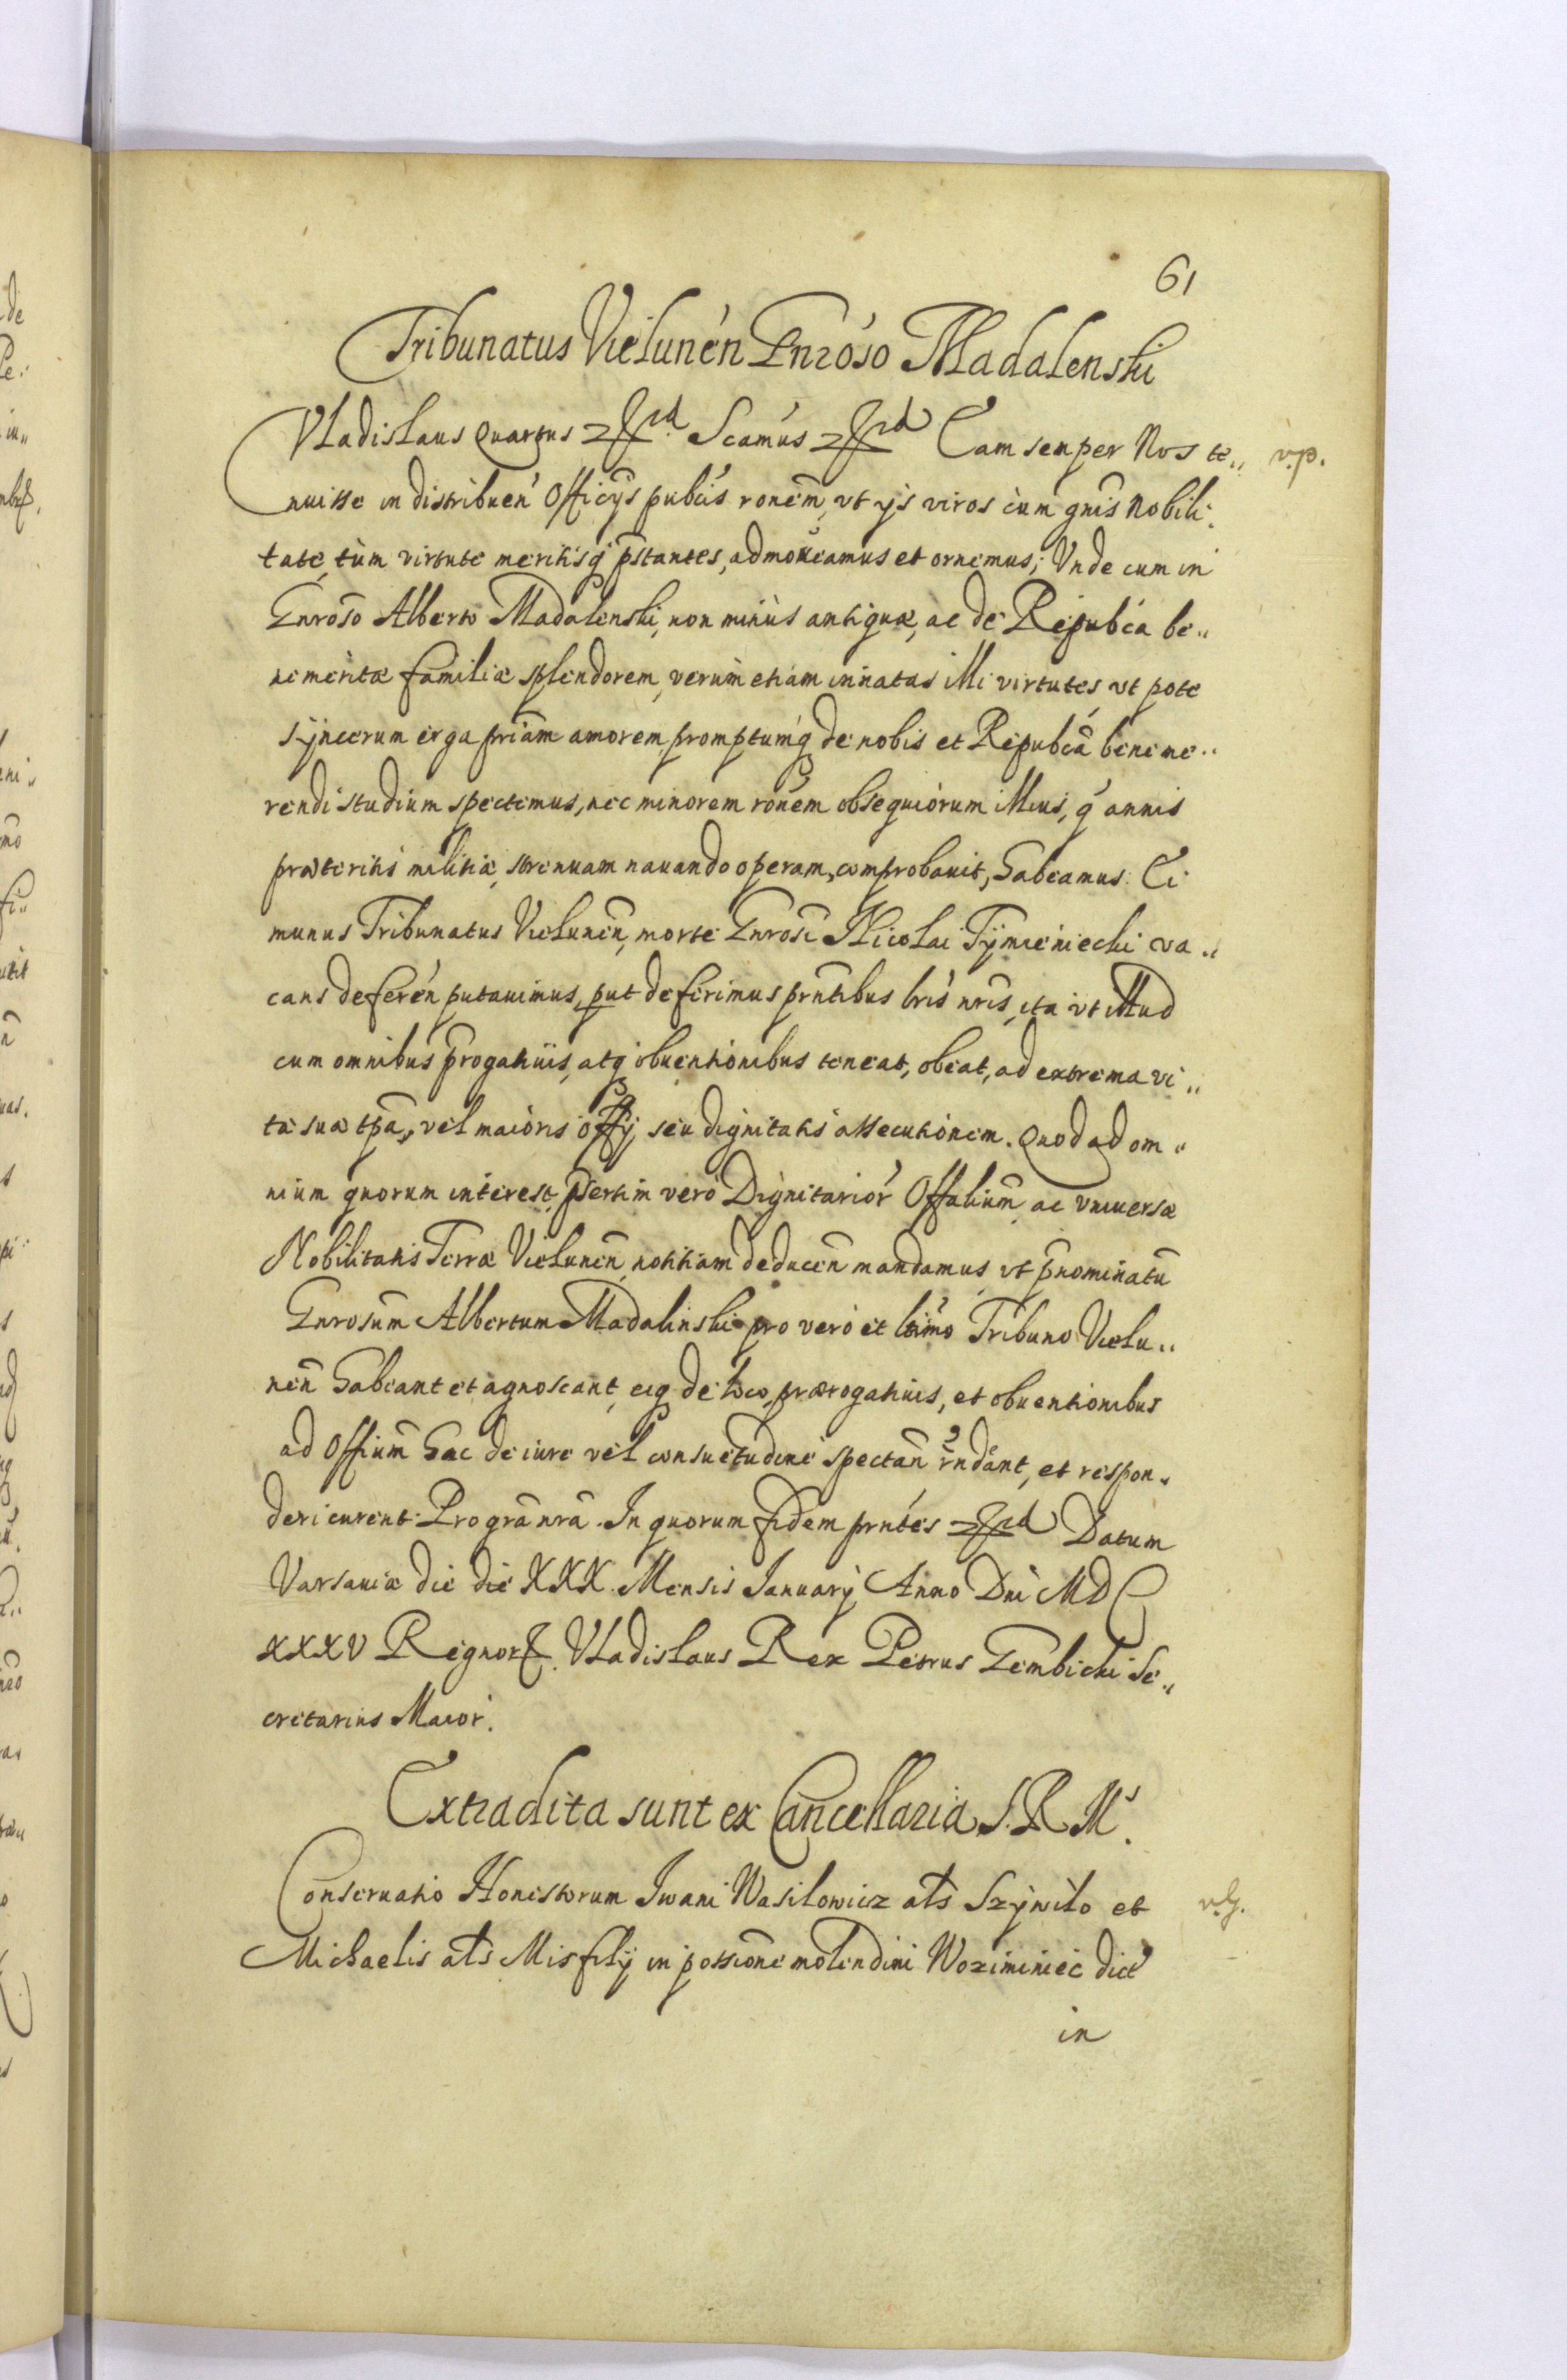 61
Tribunatus Vielunén Gnróso Madalenski
Vladislaus Quartus Scamús Eam semper Nos te„ v.p.
nuisse in distribuen̄ Officijs pubcis ronem̄, vt ijs viros cum gnis Nobili„
tate, tùm virtute meritisq̄ pstantes, admoueamus et ornemus; Vnde cum in
Gnroso Alberto Madalenski, non minùs antiquæ, ac de Repubca be„
nemeritæ familiæ splendorem, verùm etiam innatas illi virtutes, vt pote
sÿncerum erga priam̄ amorem, promptumq̄ de nobis et Repubcā beneme„
rendi studium spectemus, nec minorem ronem̄ obsequiorum illius, q̄ annis
præteritis militiæ, strenuam nauando operam, comprobauit, habeamus: Ei
munus Tribunatus Vielunen̄, morte Gnrosi Nicolai Tÿmieniecki va„
cans deferén putauimus, put deferimus prntibus lris nris, ita vt illud
cum omnibus progatiuis, atq̄ obuentionibus teneat, obeat, ad extrema vi„
tæ suæ tpa, vel maioris offÿ seu dignitatis assecutionem. Quod ad om„
nium quorum interest, psertim verò Dignitariór Offalium̄ ac vniuersæ
Nobilitatis Terræ Vielunen̄, notitiam deducen̄ mandamus, vt pnominatū
Gnrosum Albertum Madalinski pro vero et ltimo Tribuno Vielu„
nen̄ habeant et agnoscant, eiq̄ de loco, prærogatiuis, et obuentionibus
ad Offium̄ hac de iure vel consuetudine spectan̄ rndant, et respon„
deri curent. Pro grā nrā. In quorum fidem prntes Datum
Varsauiæ die die XXX. Mensis Januarÿ Anno Dni MDC
XXXV Regnor. Vladislaus Rex Petrus Gembicki Se„
cretarius Maior.
Extradita sunt ex Cancellaria S.R.M.
Conseruatio Honestorum Iwani Wasilowicz als Szÿwilo et v.g.
Michaelis als Mis filÿ in possione molendini Woziminiec dict
in